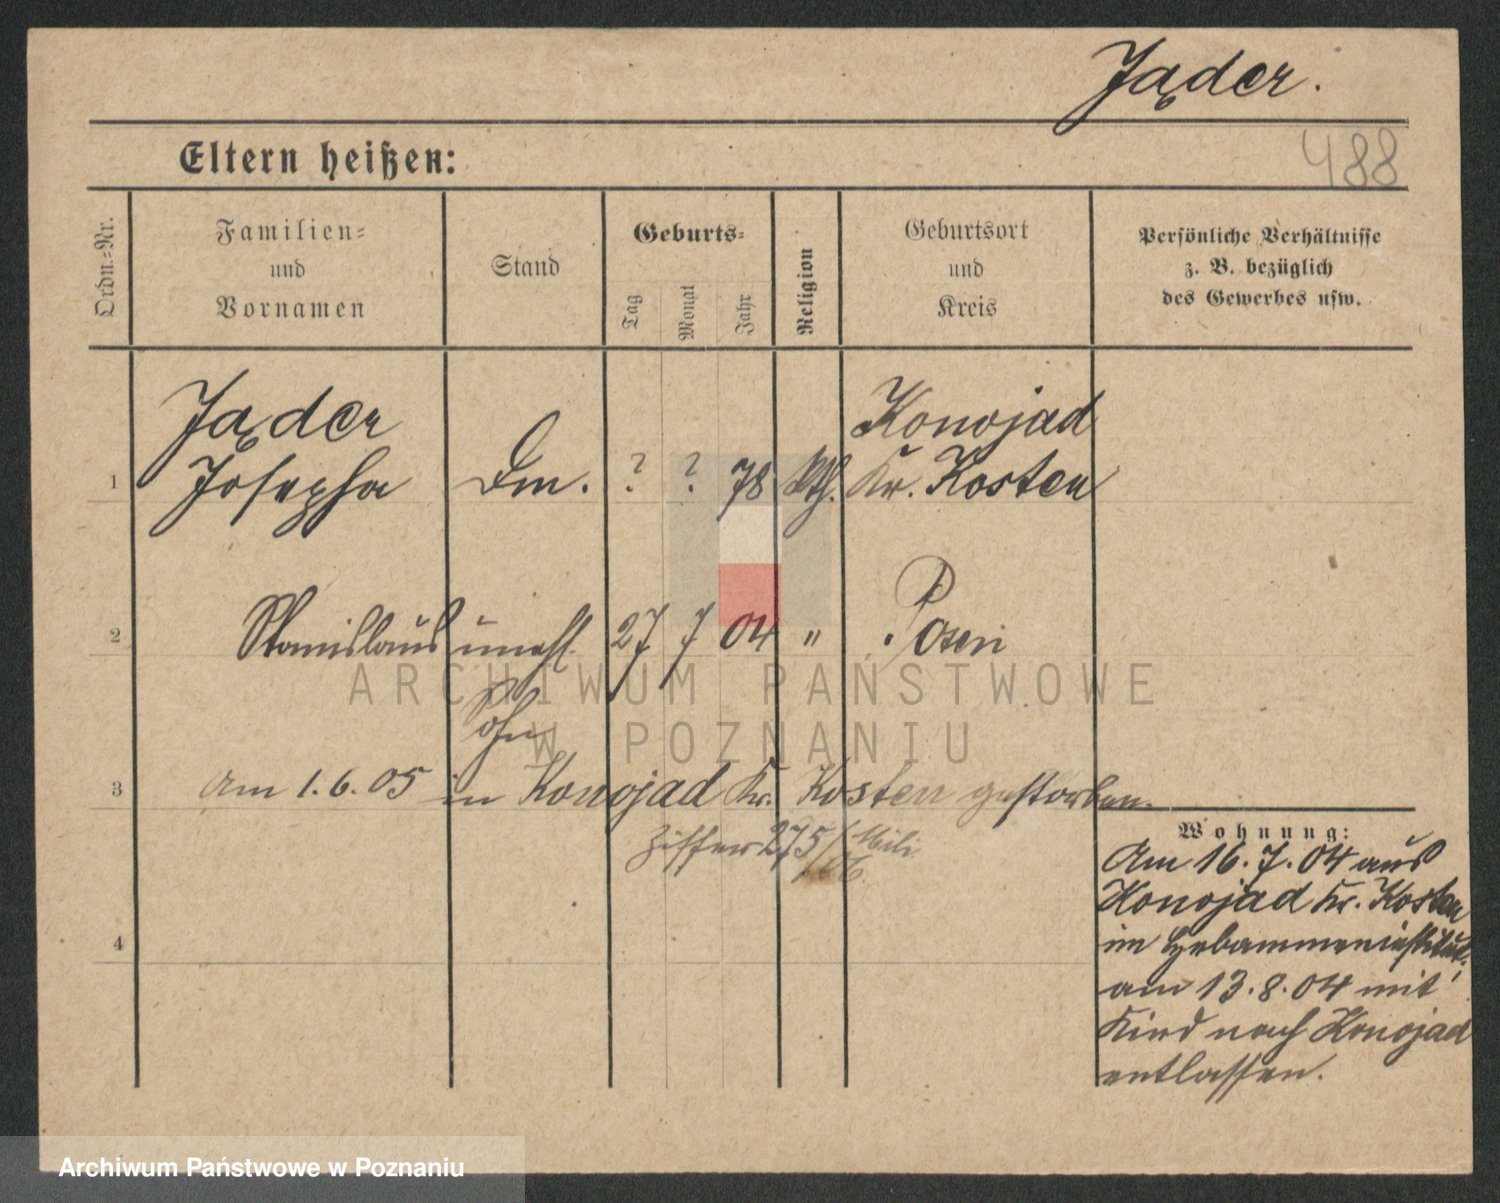 Jąder.
488
Eltern heißen:
Ordn.=Nr.
Familien=
und
Vornamen
Stand
Geburts=
Tag
Monat
Jahr
Religion
Geburtsort
und
Kreis
Persönliche Verhältnisse
z. B. bezüglich
des Gewerbes usw.
Jąder
Konojad
1 Josepha ? ? 78 kth. Kr. Kosten
2 Stanislaus unehl. 27 7 04 " Posen
Sohn
3 Am 1.6.05 in Konojad Kr. Kosten gestorben.
Ziffer 275/
Wohnung:
Am 16.7.04 aus
Konojad Kr. Kosten
im Hebammeninstitut,
am 13.8.04 mit
Kind nach Konojad
entlassen.
4
ARCHIWUM PAŃSTWOWE
W POZNANIU
Archiwum Państwowe w Poznaniu